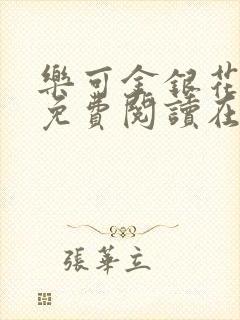 樂可金銀花
免費閱讀在
張華立